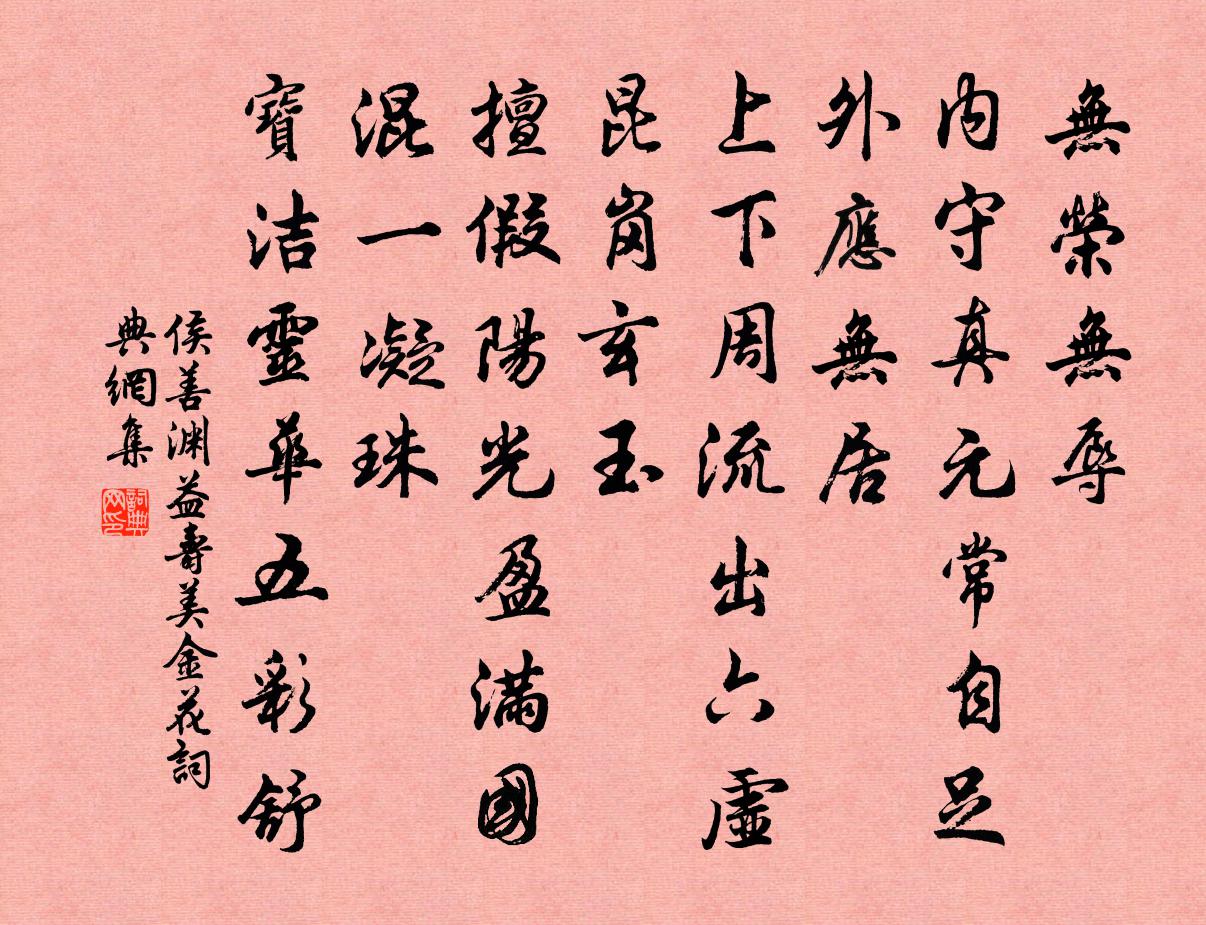 無榮無辱
內守真元常自足
外應無居
上下周流出六虛
昆崗玄玉
擅假陽光盈滿國
混一凝珠
寶洁靈華五彩舒
侯善渊益壽美金花詞
典網集
詞典网印